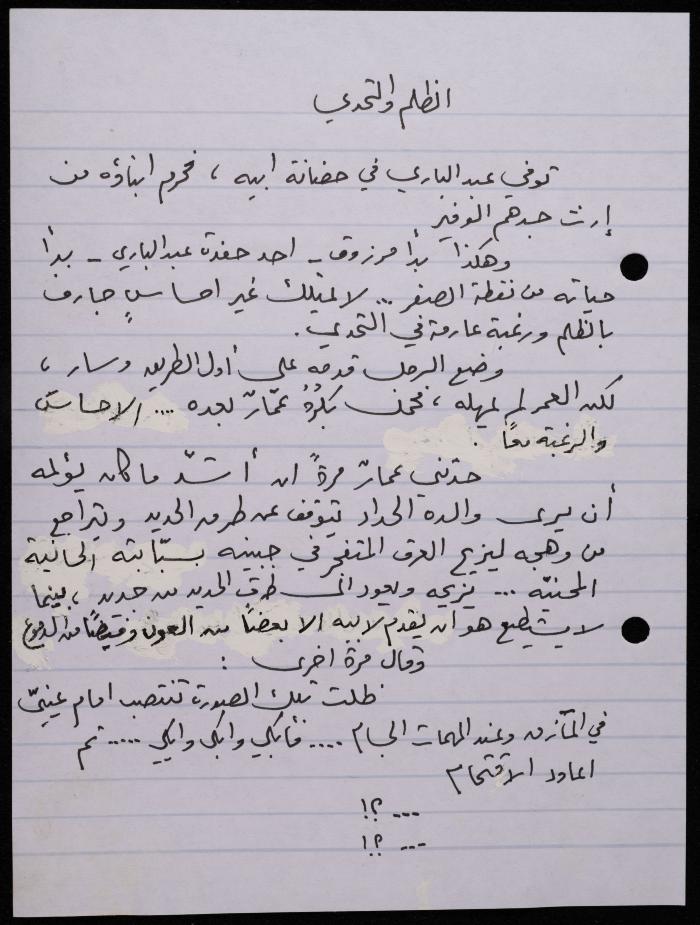 الظلم والتحدي
توفي عبدالباري في حضانة ابيه ، فحرم ابناؤه من
إرث جدهم الوفير
وهكذا بدأ مرزوق - احد حفدة عبدالباري - بدأ
حياته من نقطة الصفر ... لا يمتلك غير احساسٍ جارف
بالظلم ورغبة عارمة في التحدي .
وضع الرجل قدمه على أول الطريق وسار ،
لكن العمر لم يمهله ، فحمل بكرُهُ عمّارٌ بعده .... الاحساسَ
والرغبة معًا .
حدّثني عمارٌ مرةً ان أشدّ ما كان يؤلمه
أن يرى والده الحداد يتوقف عن طرق الحديد ويتراجع
من وهجه ليزيح العرق المتفجر في جبينه بسبّابته الحانية
المحنيّه ... يزيحه ويعود الى طرق الحديد من جديد ، بينما
لا يستطيع هو أن يقدم لابيه الا بعضًا من العون وفيضًا من الدموع
وقال مرة اخرى :
ظلت تلك الصورة تنتصب امام عينيّ
في المآزق وعند المهمات الجسام .... فأبكي وابكي وابكي ..... ثم
اعاود الاقتحام
... ؟!
... ؟!